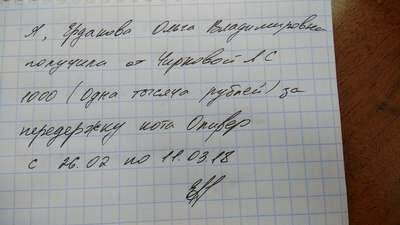 Я, Ердакова Ольга Владимировна
получила от Чирковой Л С
1000 (Одна тысяча рублей) за
передержку кота Оливер
с 26.02 по 11.03.18